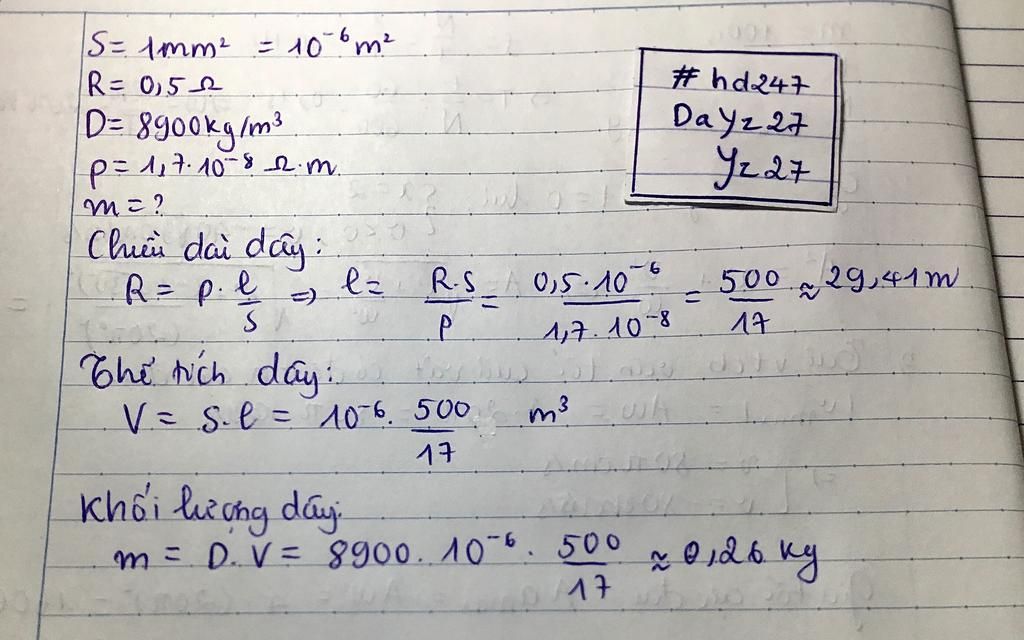 S = 1mm² = 10⁻⁶ m²
R = 0,5 Ω
D = 8900kg/m³
ρ = 1,7.10⁻⁸ Ω.m
m = ?
#hd247
DaYz27
Yz27
Chiều dài dây:
R = ρ. l/S => l = R.S/ρ = 0,5.10⁻⁶/1,7.10⁻⁸ = 500/17 ≈ 29,41 m
Thể tích dây:
V = S.l = 10⁻⁶. 500/17 m³
Khối lượng dây:
m = D.V = 8900. 10⁻⁶ . 500/17 ≈ 0,26 kg